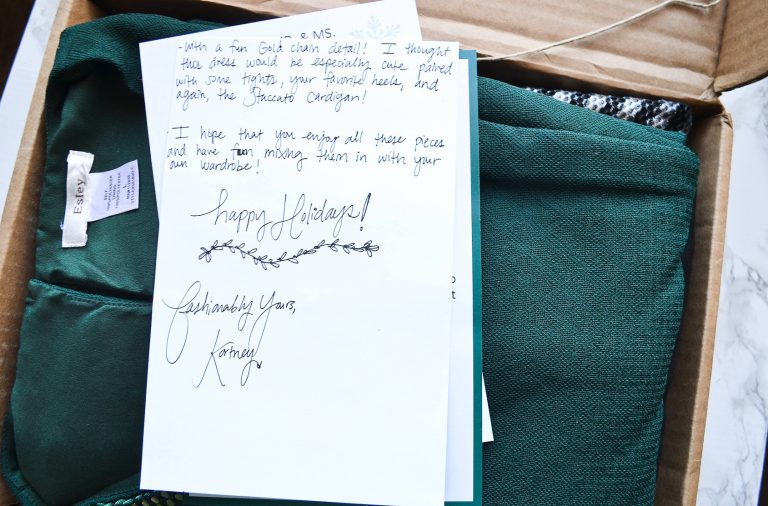 & MS.
- with a fun Gold chain detail! I thought
this dress would be especially cute paired
with some tights, your favorite heels, and
again, the Staccato Cardigan!
- I hope that you enjoy all these pieces
and have fun mixing them in with your
own wardrobe!
happy Holidays!
fashionably yours,
Kortney
Esley